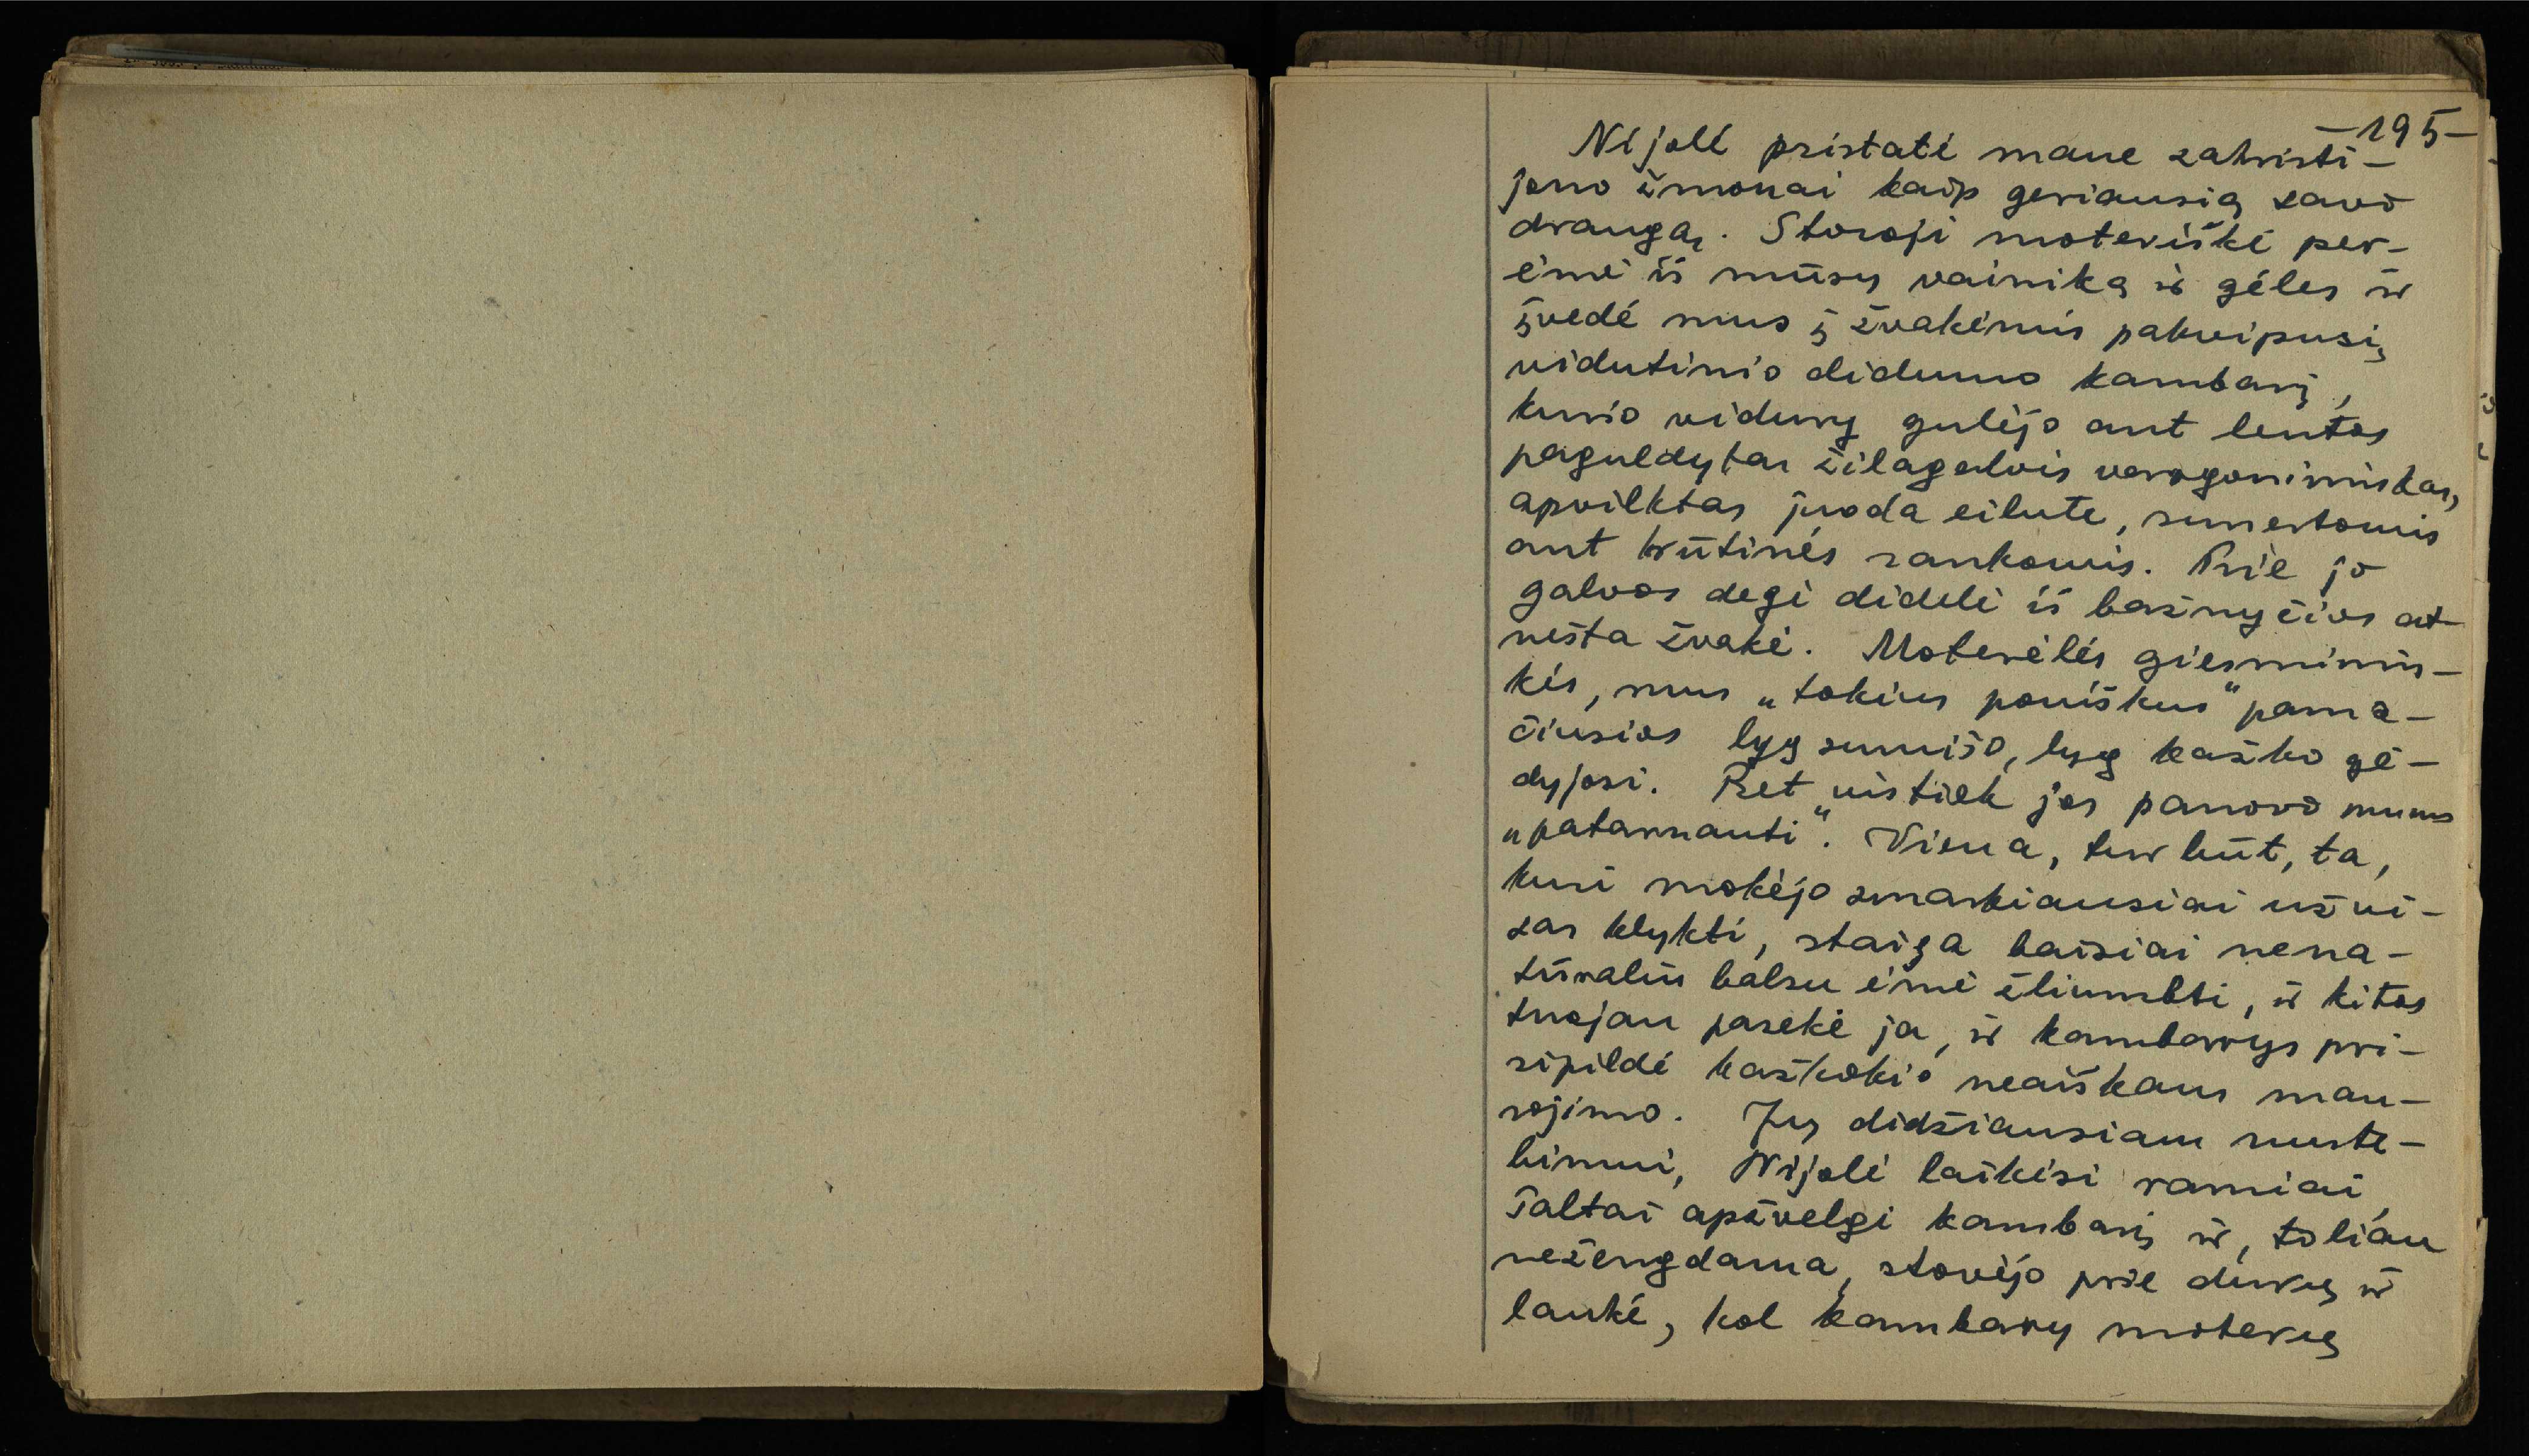 —195—
Nijolė pristatė mane zakristi-
jono žmonai kaip geriausią savo
draugą. Storoji moteriškė per-
ėmė iš mūsų vainiką ir gėles ir
įvedė mus į žvakėmis pakvipusį,
vidutinio didumo kambarį,
kurio vidury gulėjo ant lentos
paguldytas žilagalvis vargonininkas,
apvilktas juoda eilute, sunertomis
ant krūtinės rankomis. Prie jo
galvos degė didelė iš bažnyčios at-
nešta žvakė. Moterėlės giesminin-
kės, mus „tokius poniškus" pama-
čiusios lyg sumišo, lyg kažko gė-
dyjosi. Bet vistiek jos panoro mums
„patarnauti". Viena, tur būt, ta,
kuri mokėjo smarkiausiai už vi-
sas klykti, staiga baisiai nena-
tūraliu balsu ėmė žliumbti, ir kitos
tuojau pasekė ja, ir kambarys pri-
sipildė kažkokio neaiškaus mau-
rojimo. Jų didžiausiam nuste-
bimui, Nijolė laikėsi ramiai,
šaltai apžvelgė kambarį ir, toliau
nežengdama, stovėjo prie durų ir
laukė, kol kambary moterų